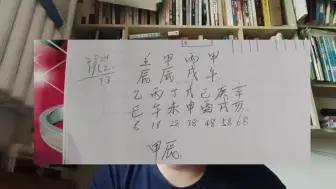 壬 甲 丙 甲
辰 辰 戌 午
乙 丙 丁 戊 己 庚 辛
巳 午 未 申 酉 戌 亥
8 18 28 38 48 58 68
甲辰